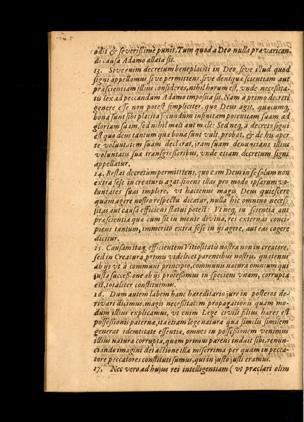 odit & severissimè punit. Tum quod a Deo nulla prævaricandi causa Adamo allata sit.
13. Sive enim decretum beneplaciti in Deo, sive illud quod
signi appellamus sive permittens, sive denique scientiam aut
præscientiam illius consideres, nihil horum est, unde necessitatu lex ad peccandum Adamo imposita sit. Nam a primo decreti
genere esse non potest simpliciter, quæ Deus agit, quæcunq;
bona sunt sibi placita secundum infinitam potentiam suam ad
gloriam suam, sed nihil mali aut
est quo deus tantum quæ bona sunt vult, probat, & de his aperte voluntatem suam declarat, iram suam denuncians illius
voluntatis suæ transgressoribus, unde etiam decretum signi
appellatur.
14. Restat decretum permittens, quo etiam Deus infæsolum non
extra sese in creaturis agit
luntates suas impleri, ut hactenus magis Deus quiescere
quam agere nostro respectu dicatur, nulla hic omnino necessitas aut causa efficiens statui potest. Atneq; in scientia aut
præscientia quæ cum sit in mente divina, res externas concipiens tantum, immerito extra sese in iis agere, aut eas cogere
dicitur.
15. Causam itaq; efficientem vitiositatis nostræ non in creatore,
sed in Creatura primum videlicet parentibus nostris, quatenus
ab iis ut à communi principio, communis natura omnium qui
justa successione ab iis prodeimus in speciem suam, corrupta
est, totaliter constituimus.
16. Dum autem labem hanc hæreditario jure in posteros derivari dicimus, magis necessitatem propagationis quam modum illius explicamus, ut enim Lege civili filius hæres est
possessionis paternæ, ita etiam lege naturæ qua similis similem
generat identitate essentiæ, omnes in possessionem venimus
illius naturæ corruptæ, quam primus parens induit sibi, renunciando imagini dei actione illa miserrima per quam in peccatore peccatores constituti sumus, qui in justo justi eramus.
17. Nec vero ad hujus rei intelligentiam (ut præclari olim